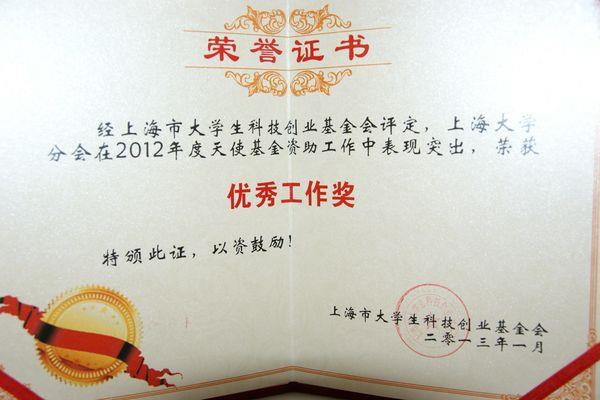 荣誉证书
经上海市大学生科技创业基金会评定，上海大学
分会在2012年度天使基金资助工作中表现突出，荣获
优秀工作奖
特颁此证，以资鼓励！
上海市大学生科技创业基金会
二零一三年一月